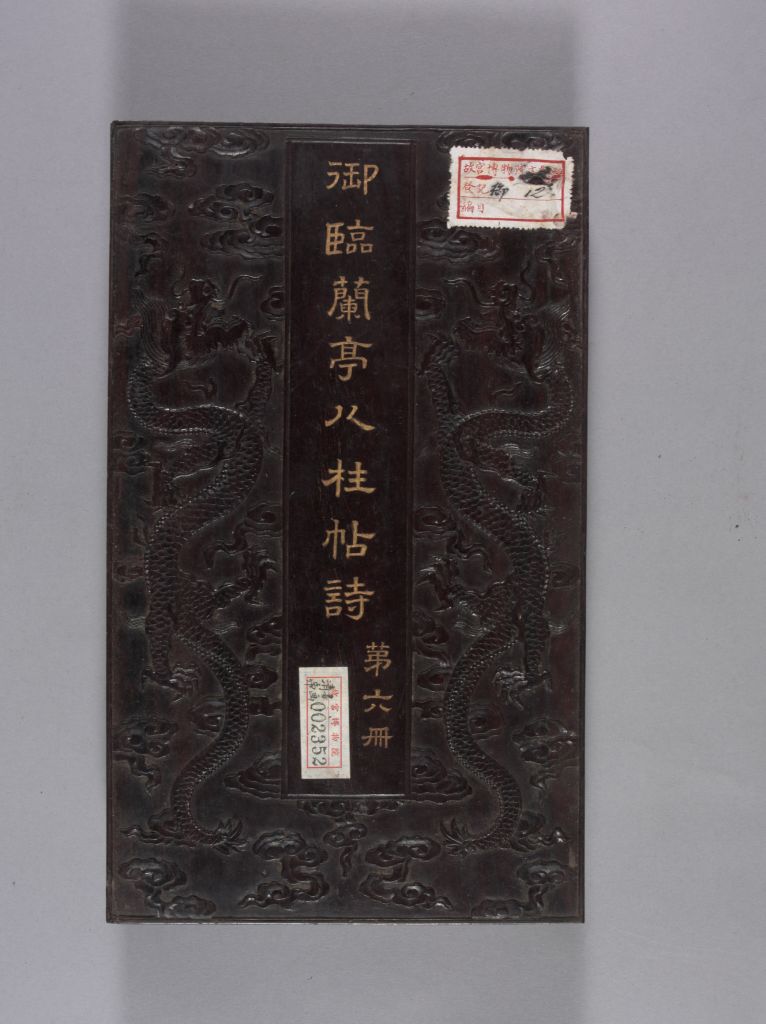 御臨蘭亭八柱帖詩
第六冊
故宮博物院
登記 御 12
編目
故宮博物院
002352